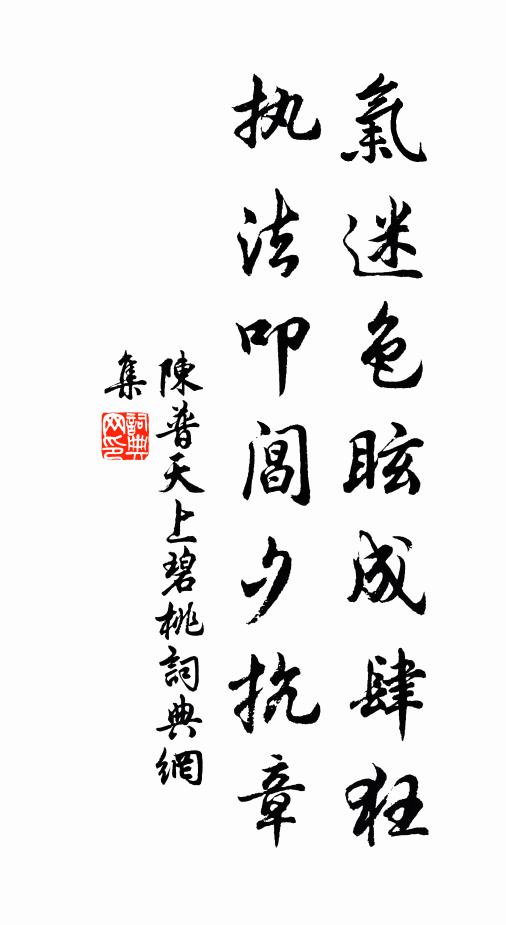 氣迷色眩成肆狂
执法叩閶夕抗章
陳普天上碧桃詞典網
集
詞典网印